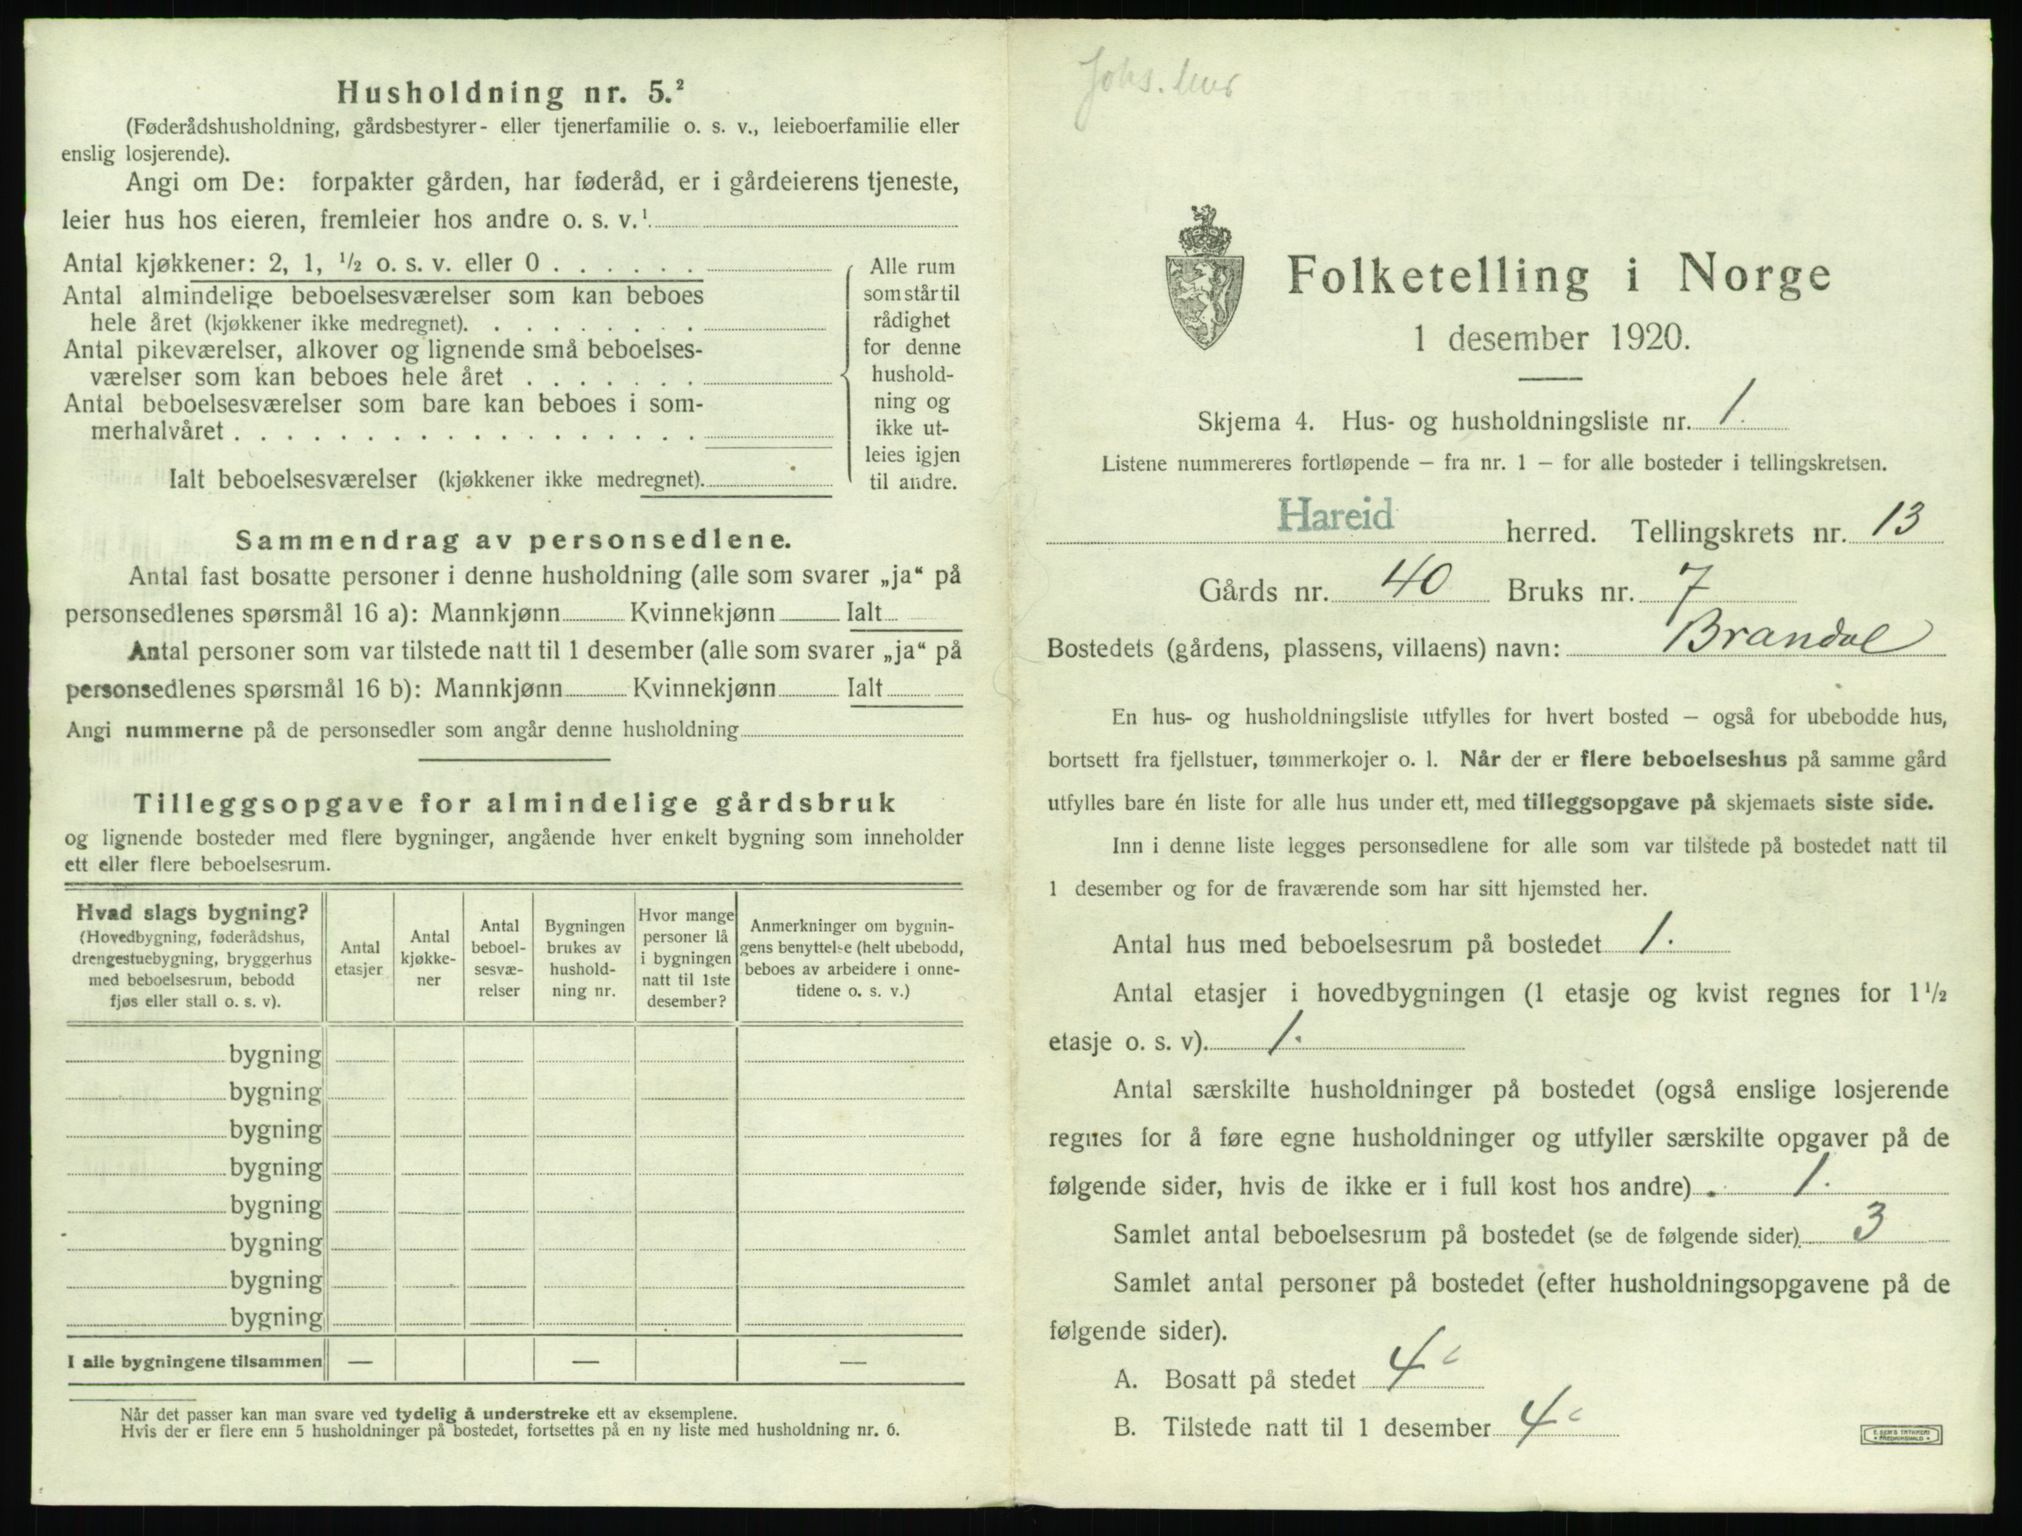 Husholdning nr. 5.²
(Føderådshusholdning, gårdsbestyrer- eller tjenerfamilie o. s. v., leieboerfamilie eller
enslig losjerende).
Angi om De: forpakter gården, har føderåd, er i gårdeierens tjeneste,
leier hus hos eieren, fremleier hos andre o. s. v.¹
Antal kjøkkener: 2, 1, ½ o. s. v. eller 0 . . . . . .
Antal almindelige beboelsesværelser som kan beboes
hele året (kjøkkener ikke medregnet). . . . . . . . .
Antal pikeværelser, alkover og lignende små beboelses-
værelser som kan beboes hele året . . . . . . .
Antal beboelsesværelser som bare kan beboes i som-
merhalvåret . . . . . . . . . . . . . . . . . .
Ialt beboelsesværelser (kjøkkener ikke medregnet).
Alle rum
som står til
rådighet
for denne
hushold-
ning og
ikke ut-
leies igjen
til andre.
Sammendrag av personsedlene.
Antal fast bosatte personer i denne husholdning (alle som svarer „ja“ på
personsedlenes spørsmål 16 a): Mannkjønn Kvinnekjønn Ialt
Antal personer som var tilstede natt til 1 desember (alle som svarer „ja“ på
personsedlenes spørsmål 16 b): Mannkjønn Kvinnekjønn Ialt
Angi nummerne på de personsedler som angår denne husholdning
Tilleggsopgave for almindelige gårdsbruk
og lignende bosteder med flere bygninger, angående hver enkelt bygning som inneholder
ett eller flere beboelsesrum.
Hvad slags bygning?
(Hovedbygning, føderådshus,
drengestuebygning, bryggerhus
med beboelsesrum, bebodd
fjøs eller stall o. s. v).
Antal
etasjer
Antal
kjøkke-
ner
Antal
beboel-
sesvæ-
relser
Bygningen
brukes av
hushold-
ning nr.
Hvor mange
personer lå
i bygningen
natt til 1ste
desember?
Anmerkninger om bygnin-
gens benyttelse (helt ubebodd,
beboes av arbeidere i onne-
tidene o. s. v.)
bygning
bygning
bygning
bygning
bygning
bygning
bygning
bygning
I alle bygningene tilsammen — — —
Når det passer kan man svare ved tydelig å understreke ett av eksemplene.
Hvis der er flere enn 5 husholdninger på bostedet, fortsettes på en ny liste med husholdning nr. 6.
Johs.
Folketelling i Norge
1 desember 1920.
Skjema 4. Hus- og husholdningsliste nr. 1.
Listene nummereres fortløpende – fra nr. 1 – for alle bosteder i tellingskretsen.
Hareid herred. Tellingskrets nr. 13
Gårds nr. 40 Bruks nr. 7
Bostedets (gårdens, plassens, villaens) navn: Brandal
En hus- og husholdningsliste utfylles for hvert bosted – også for ubebodde hus,
bortsett fra fjellstuer, tømmerkojer o. l. Når der er flere beboelseshus på samme gård
utfylles bare én liste for alle hus under ett, med tilleggsopgave på skjemaets siste side.
Inn i denne liste legges personsedlene for alle som var tilstede på bostedet natt til
1 desember og for de fraværende som har sitt hjemsted her.
Antal hus med beboelsesrum på bostedet 1.
Antal etasjer i hovedbygningen (1 etasje og kvist regnes for 1½
etasje o. s. v). 1.
Antal særskilte husholdninger på bostedet (også enslige losjerende
regnes for å føre egne husholdninger og utfyller særskilte opgaver på de
følgende sider, hvis de ikke er i full kost hos andre) . 1.
Samlet antal beboelsesrum på bostedet (se de følgende sider) 3
Samlet antal personer på bostedet (efter husholdningsopgavene på de
følgende sider).
A. Bosatt på stedet 4
B. Tilstede natt til 1 desember 4
E. SEM'S TRYKKERI
FREDRIKSHALD